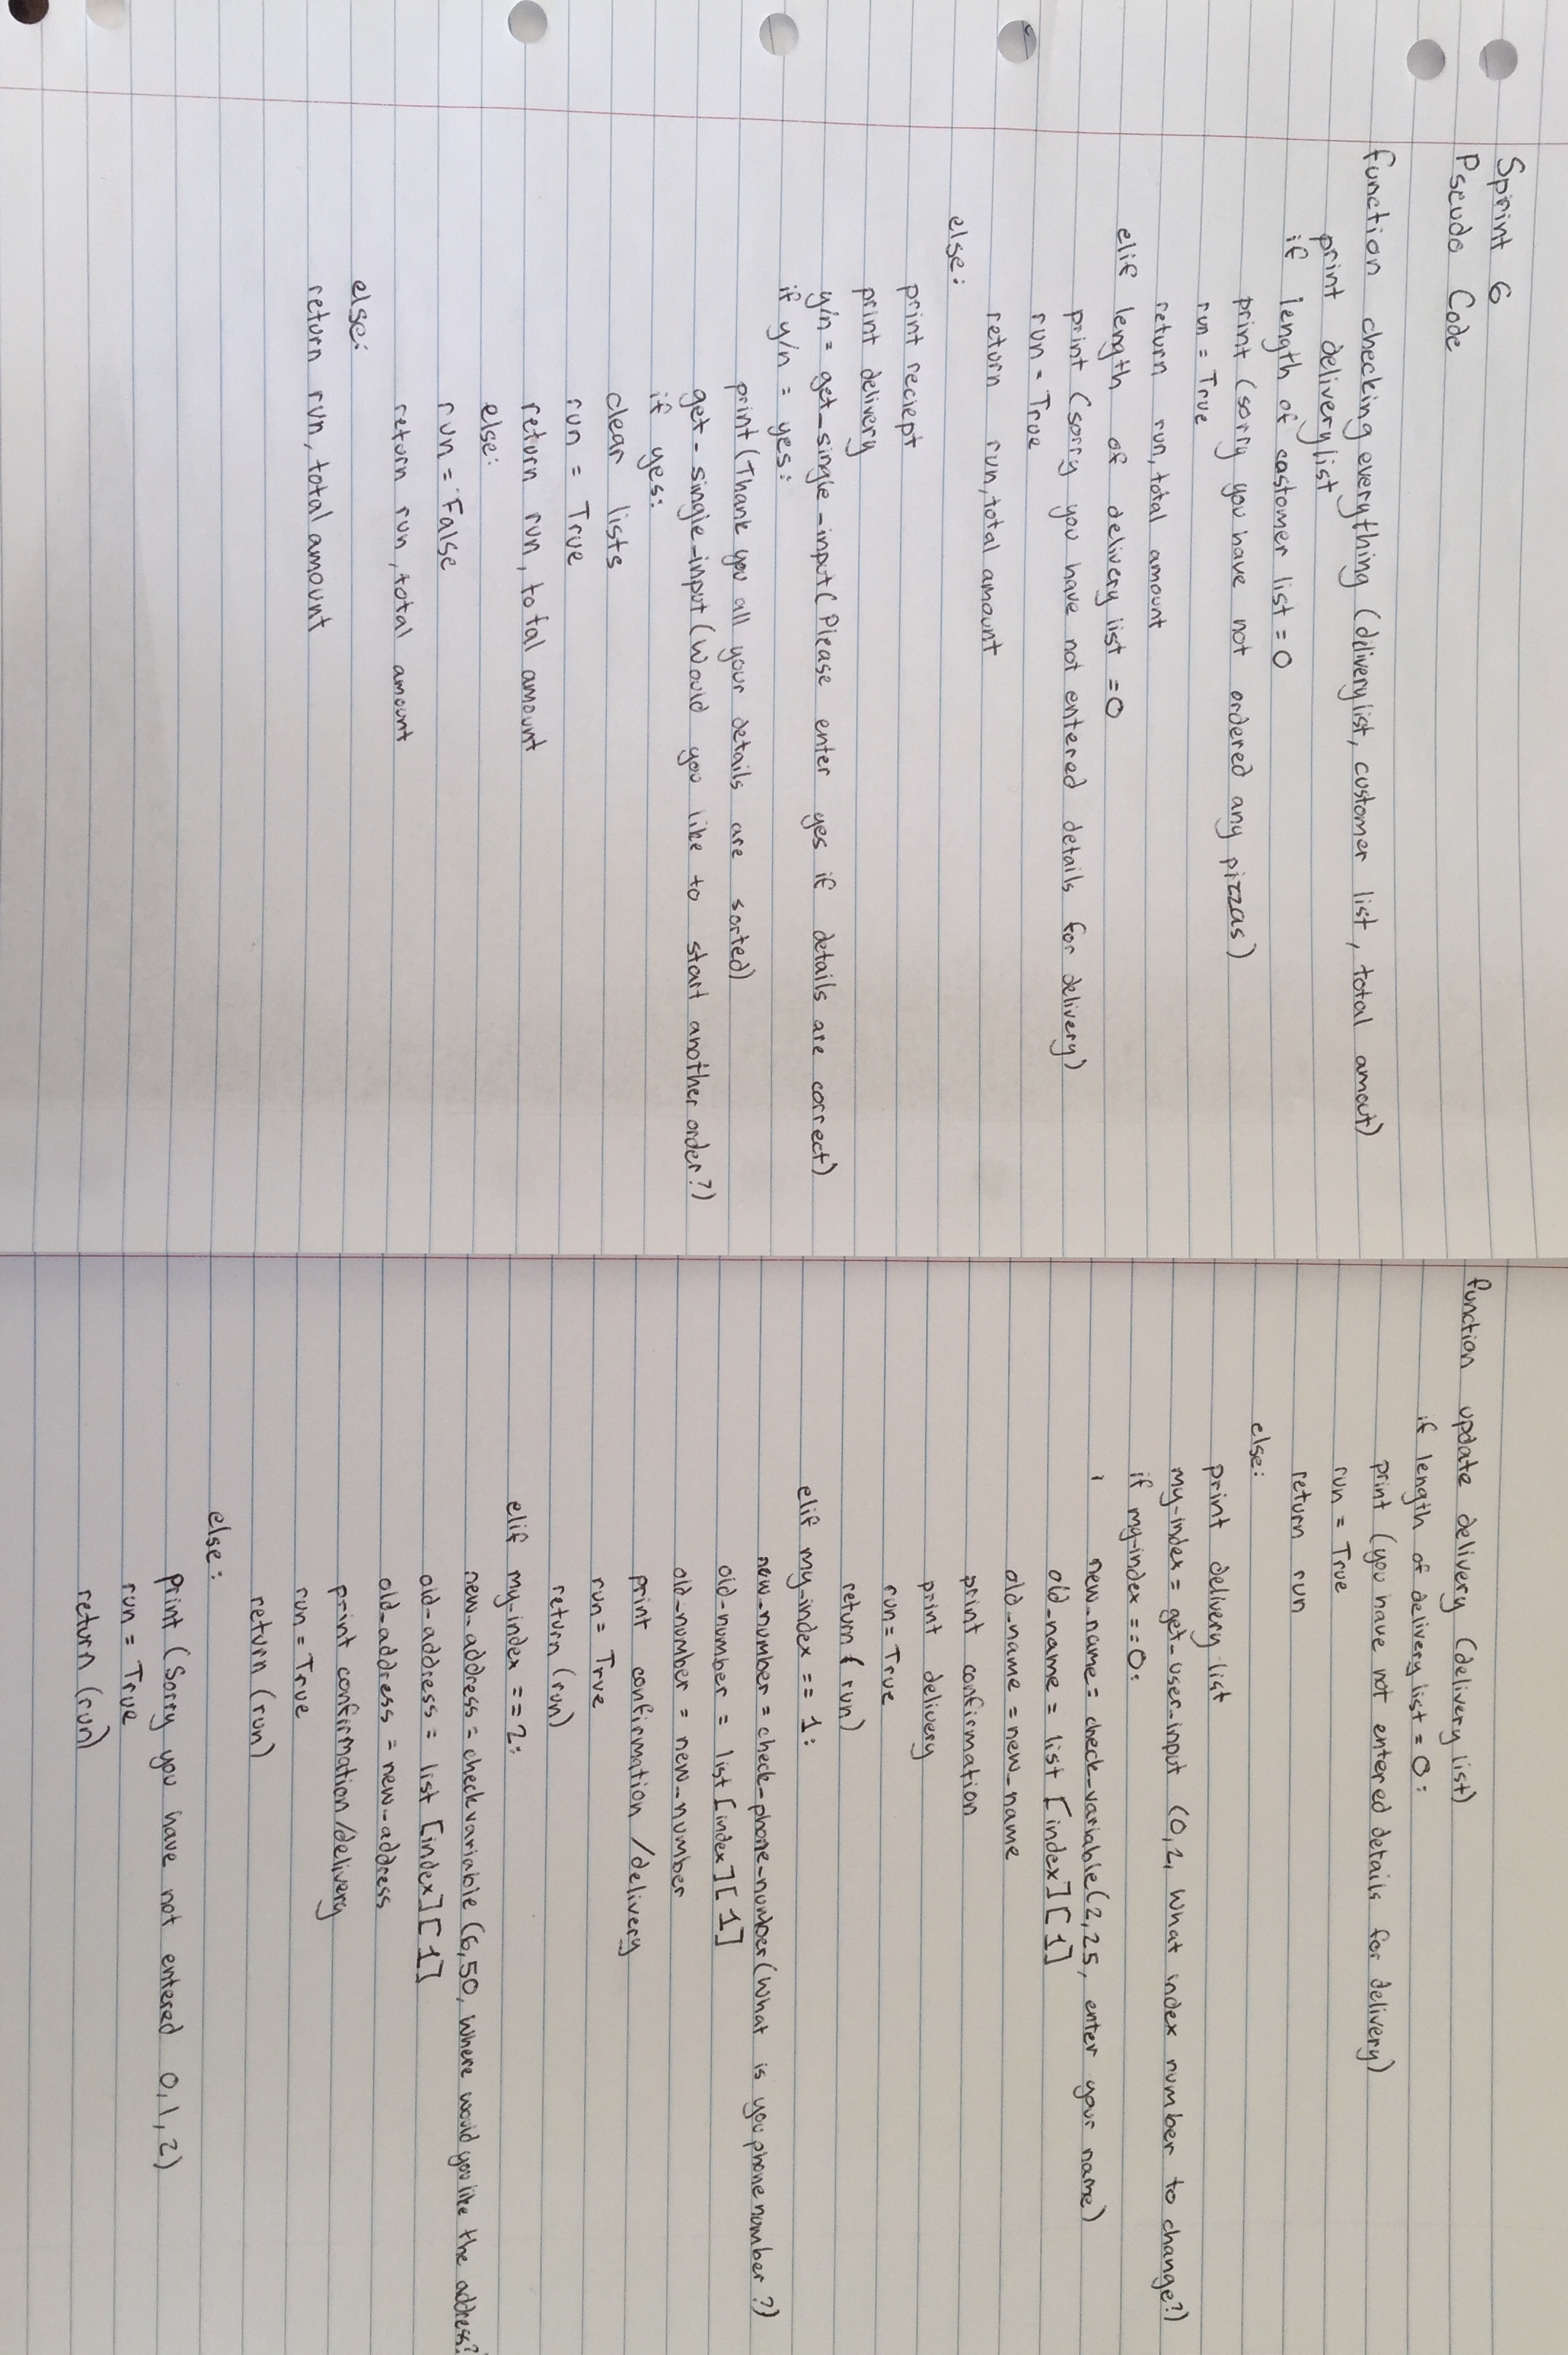 Sprint 6
Pseudo Code
function checking everything (dilivery list, customer list, total amout)
print delivery list
if length of castomer list = 0
print (sorry you have not ordered any pizzas)
run = True
return run, total amount
elif length of delivery list = 0
print (sorry you have not entered details for delivery)
run = True
return run, total amount
else:
print reciept
print delivery
y/n = get_single_input( Please enter yes if details are correct)
if y/n = yes:
print (Thank you all your details are sorted)
get_single_input (Would you like to start another order?)
if yes:
clear lists
run = True
return run, total amount
else:
run = False
return run, total amount
else:
return run, total amount
function update delivery (delivery list)
if length of delivery list = 0:
print (you have not entered details for delivery)
run = True
return run
else:
print delivery list
my-index = get_user_input (0, 2, What index number to change?)
if my-index == 0:
new_name = check_variable (2, 25, enter your name)
old_name = list [index][1]
old_name = new_name
print confirmation
print delivery
run = True
return ( run)
elif my-index == 1:
new_number = check-phone-number (What is you phone number?)
old-number = list [index][1]
old_number = new_number
print confirmation /delivery
run = True
return (run)
elif my-index == 2:
new_address = check variable (6, 50, Where would you like the address?
old-address = list [index][1]
old_address = new_address
print confirmation /delivery
run = True
return (run)
else:
print (Sorry you have not entered 0, 1, 2)
run = True
return (run)